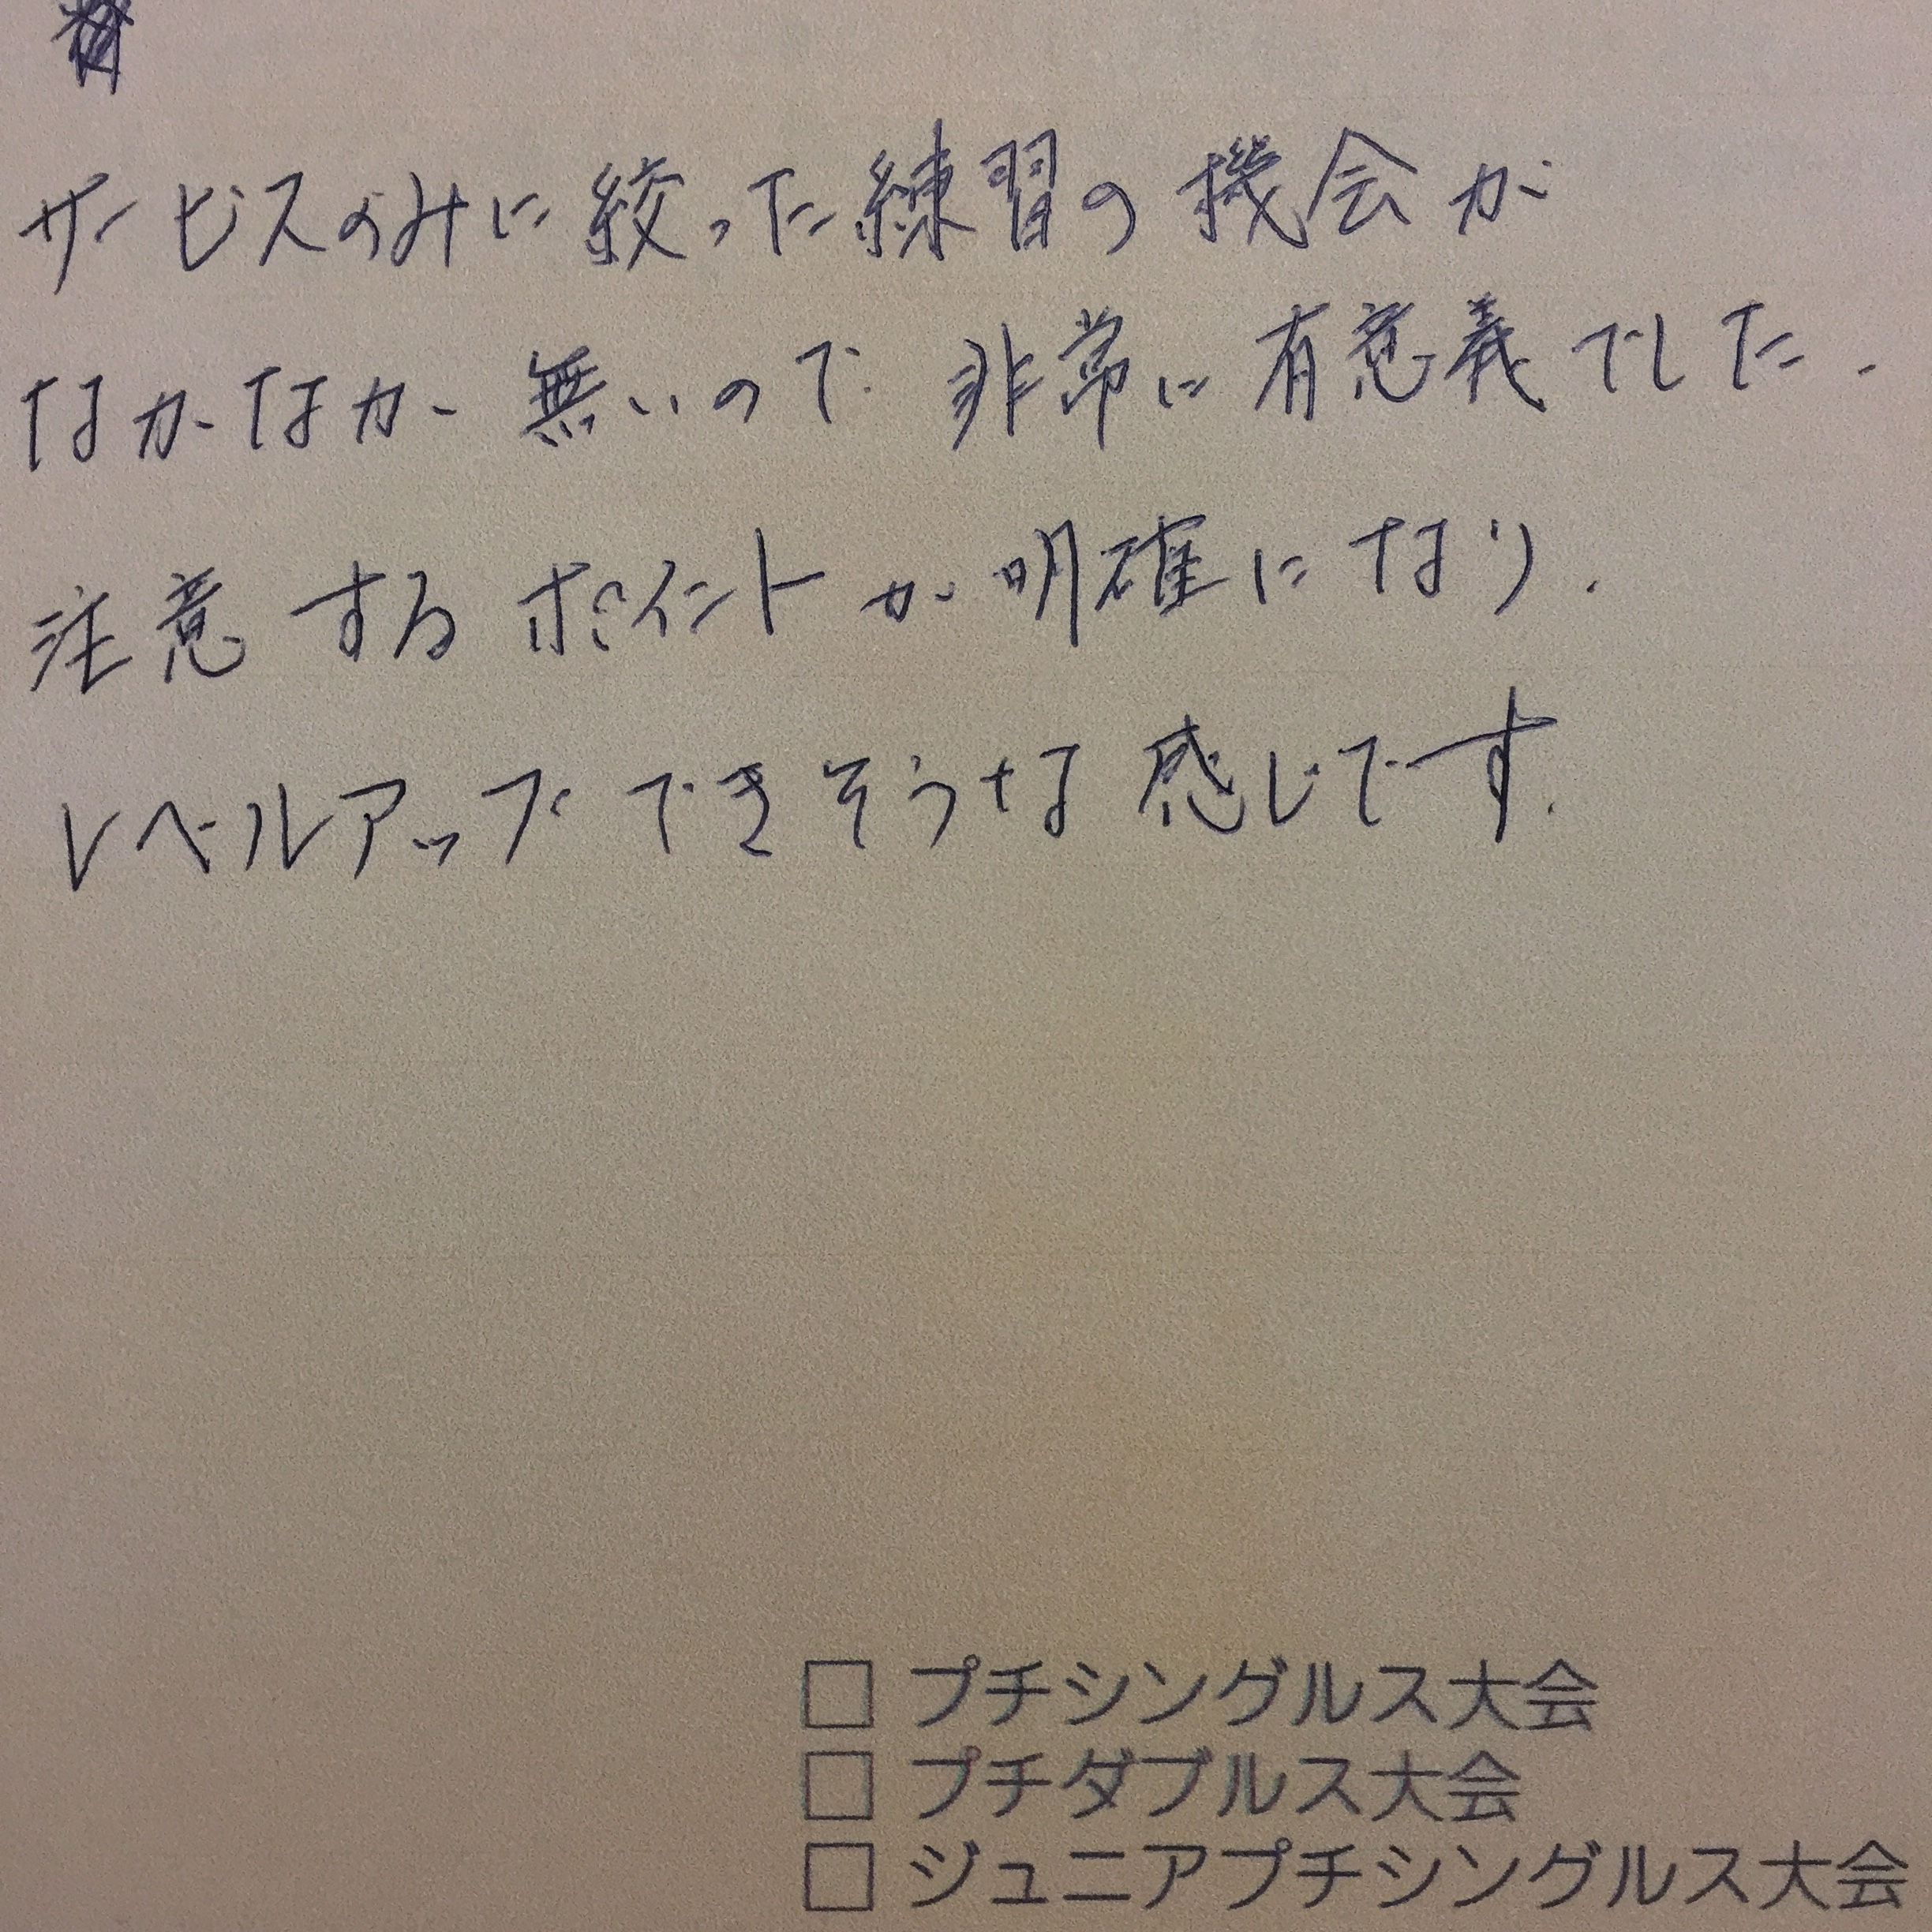 サービスのみに絞った練習の機会が
なかなか無いので非常に有意義でした.
注意するポイントが明確になり.
レベルアップできそうな感じです.
□ プチシングルス大会
□ プチダブルス大会
□ ジュニアプチシングルス大会